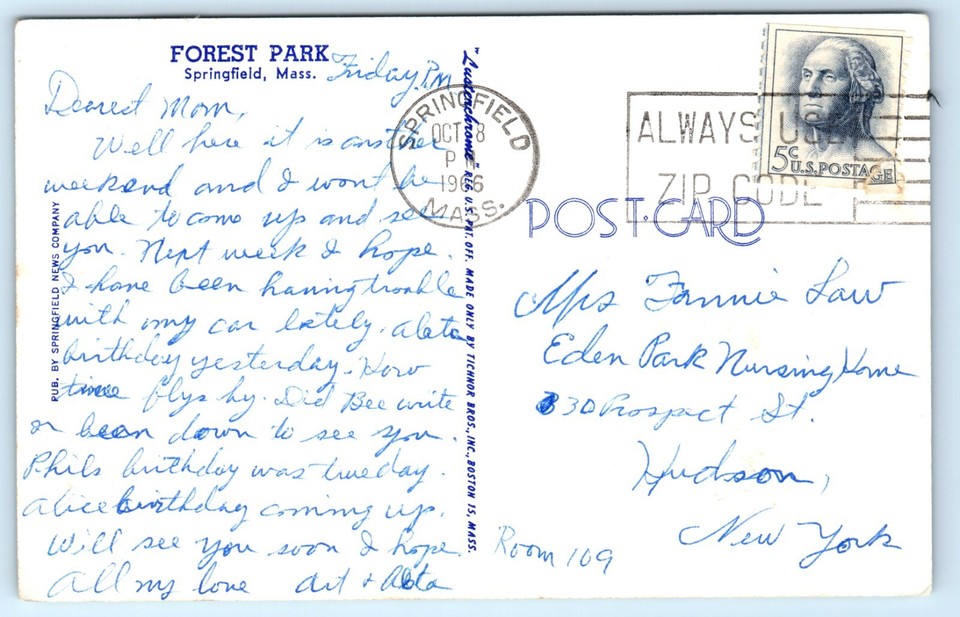 FOREST PARK
Springfield, Mass.
Friday P.M
Dearest Mom,
Well here it is another
weekend and I wont be
able to come up and see
you. Next week I hope.
I have been having trouble
with my car lately. Aleta
birthday yesterday. How
time flys by. Did Bee write
or been down to see you.
Phils birthday was tueday.
Alice birthday coming up.
Will see you soon I hope.
All my love Art + Aleta
PUB. BY SPRINGFIELD NEWS COMPANY
"Lusterchrome" REG. U.S. PAT. OFF. MADE ONLY BY TICHNOR BROS., INC., BOSTON 15, MASS.
SPRINGFIELD
OCT 8
PM
1966
MASS.
ALWAYS USE
ZIP CODE
5c
U.S. POSTAGE
POST CARD
Mrs Fannie Law
Eden Park Nursing Home
830 Prospect St.
Hudson,
New York
Room 109